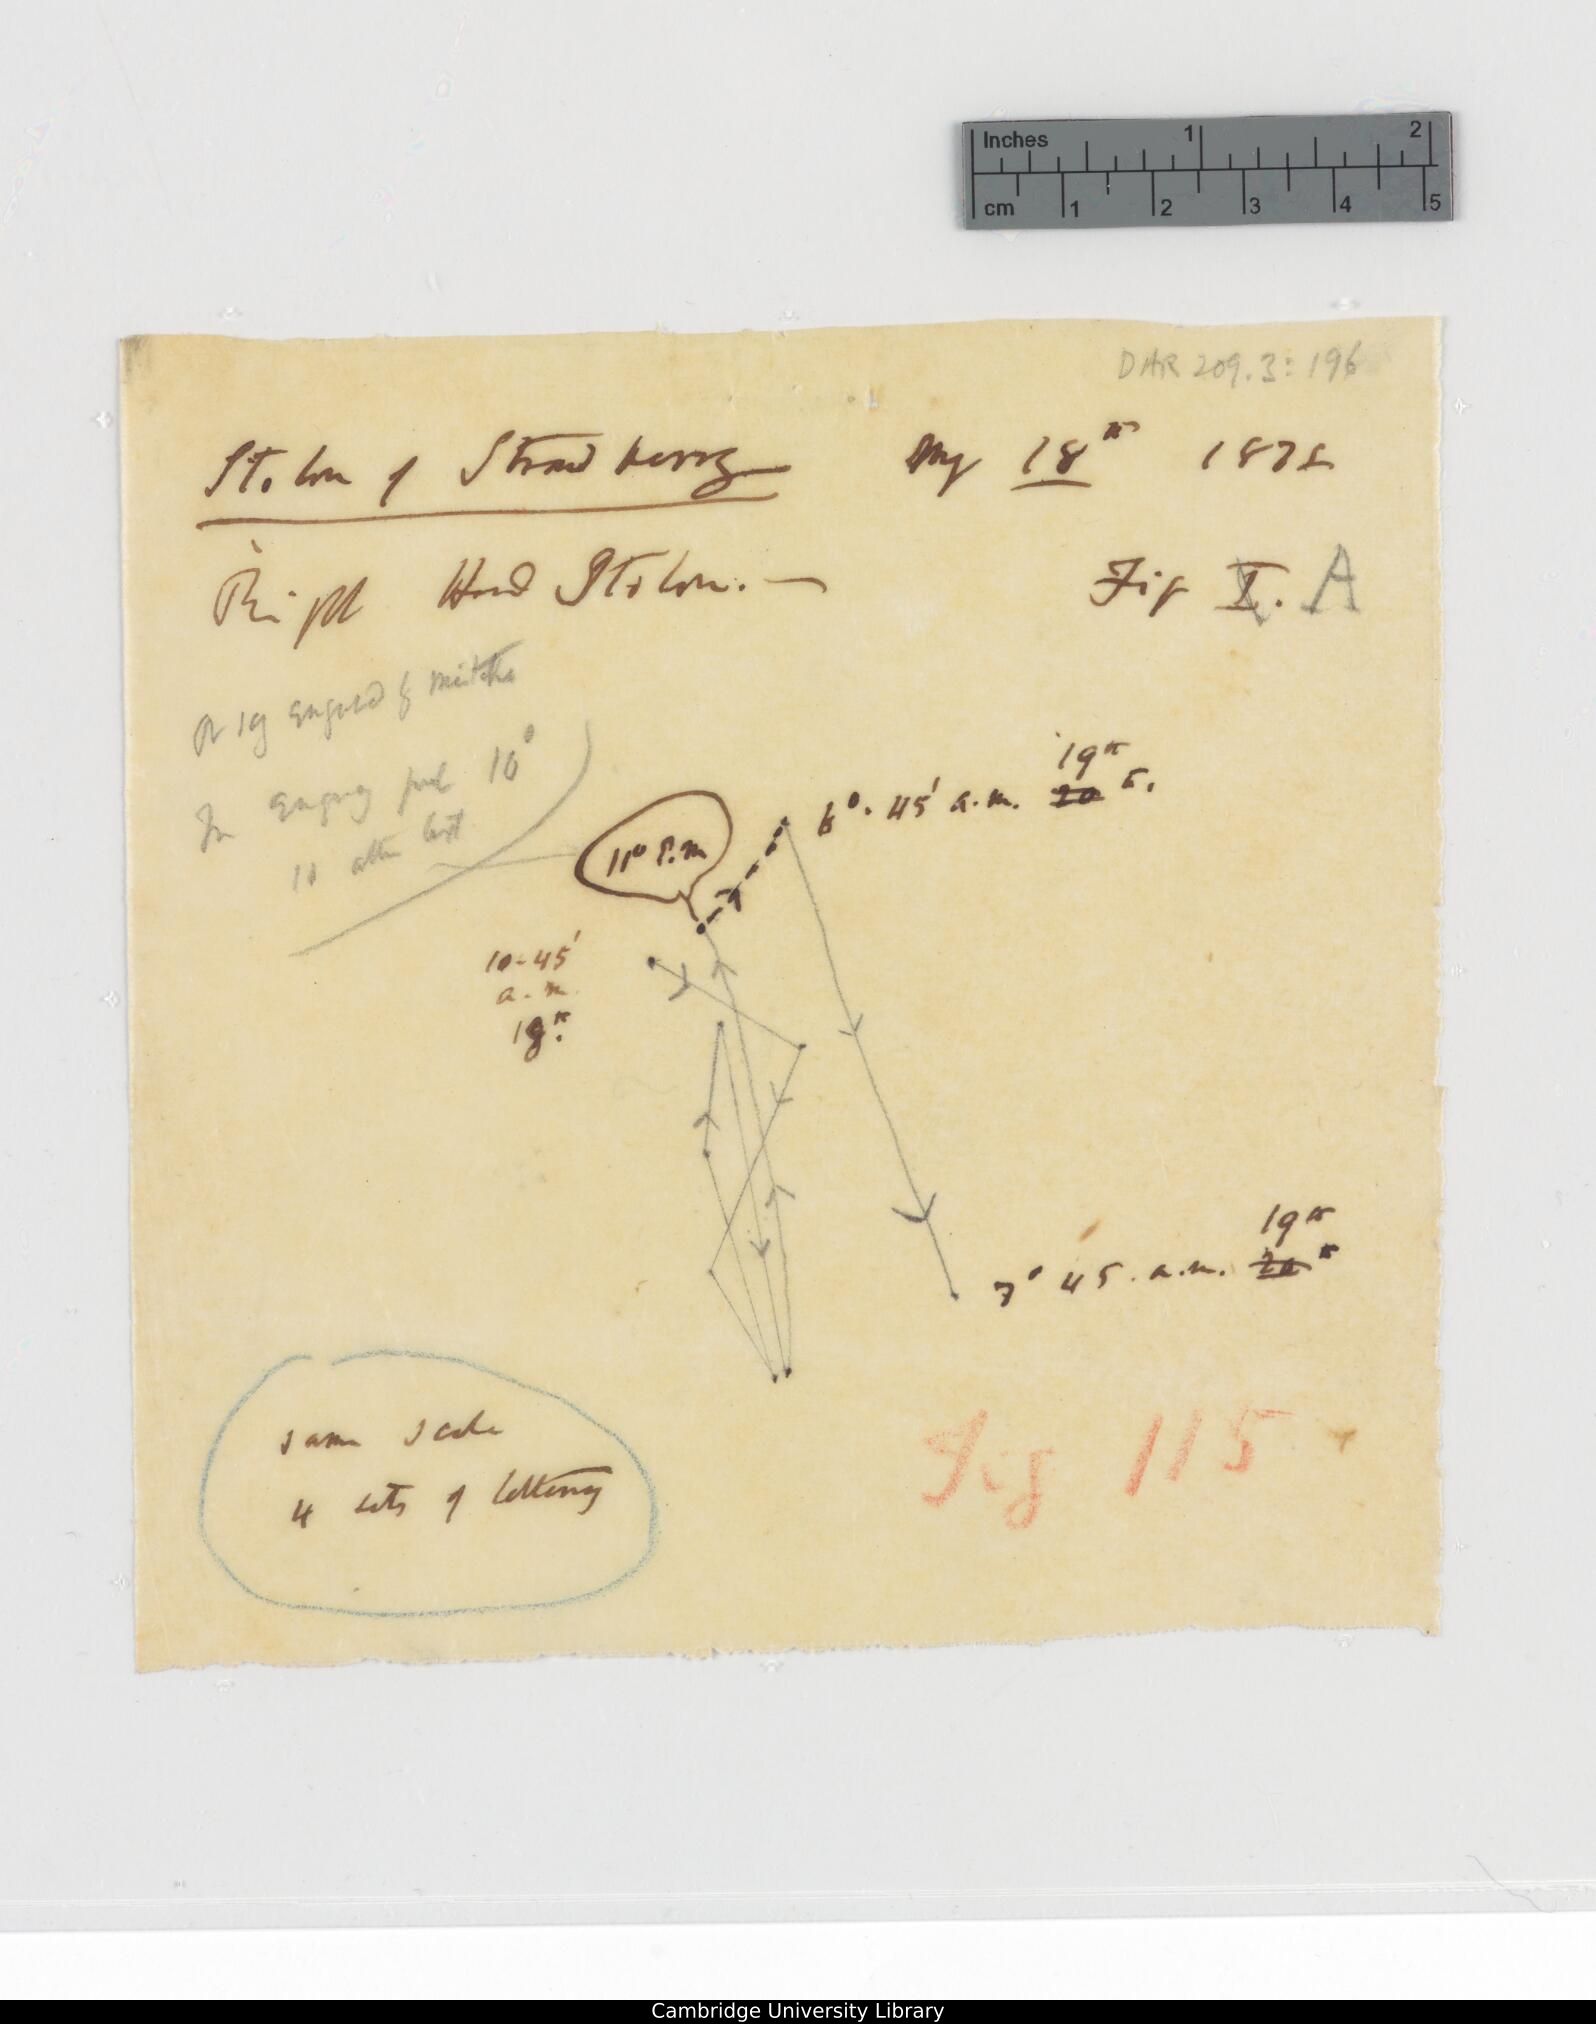 Inches 1 2
cm 1 2 3 4 5
DAR 209.3: 196
Stolon of Strawberry May 18th 1878
Right Hand Stolon. — Fig I. A
In 10°
19th
6°. 45' a.m. 20th.
11° P.m
10-45'
a.m.
18th.
19th
7° 45. a.m. 20th
same scale
4 sets of lettering
Fig 115
Cambridge University Library